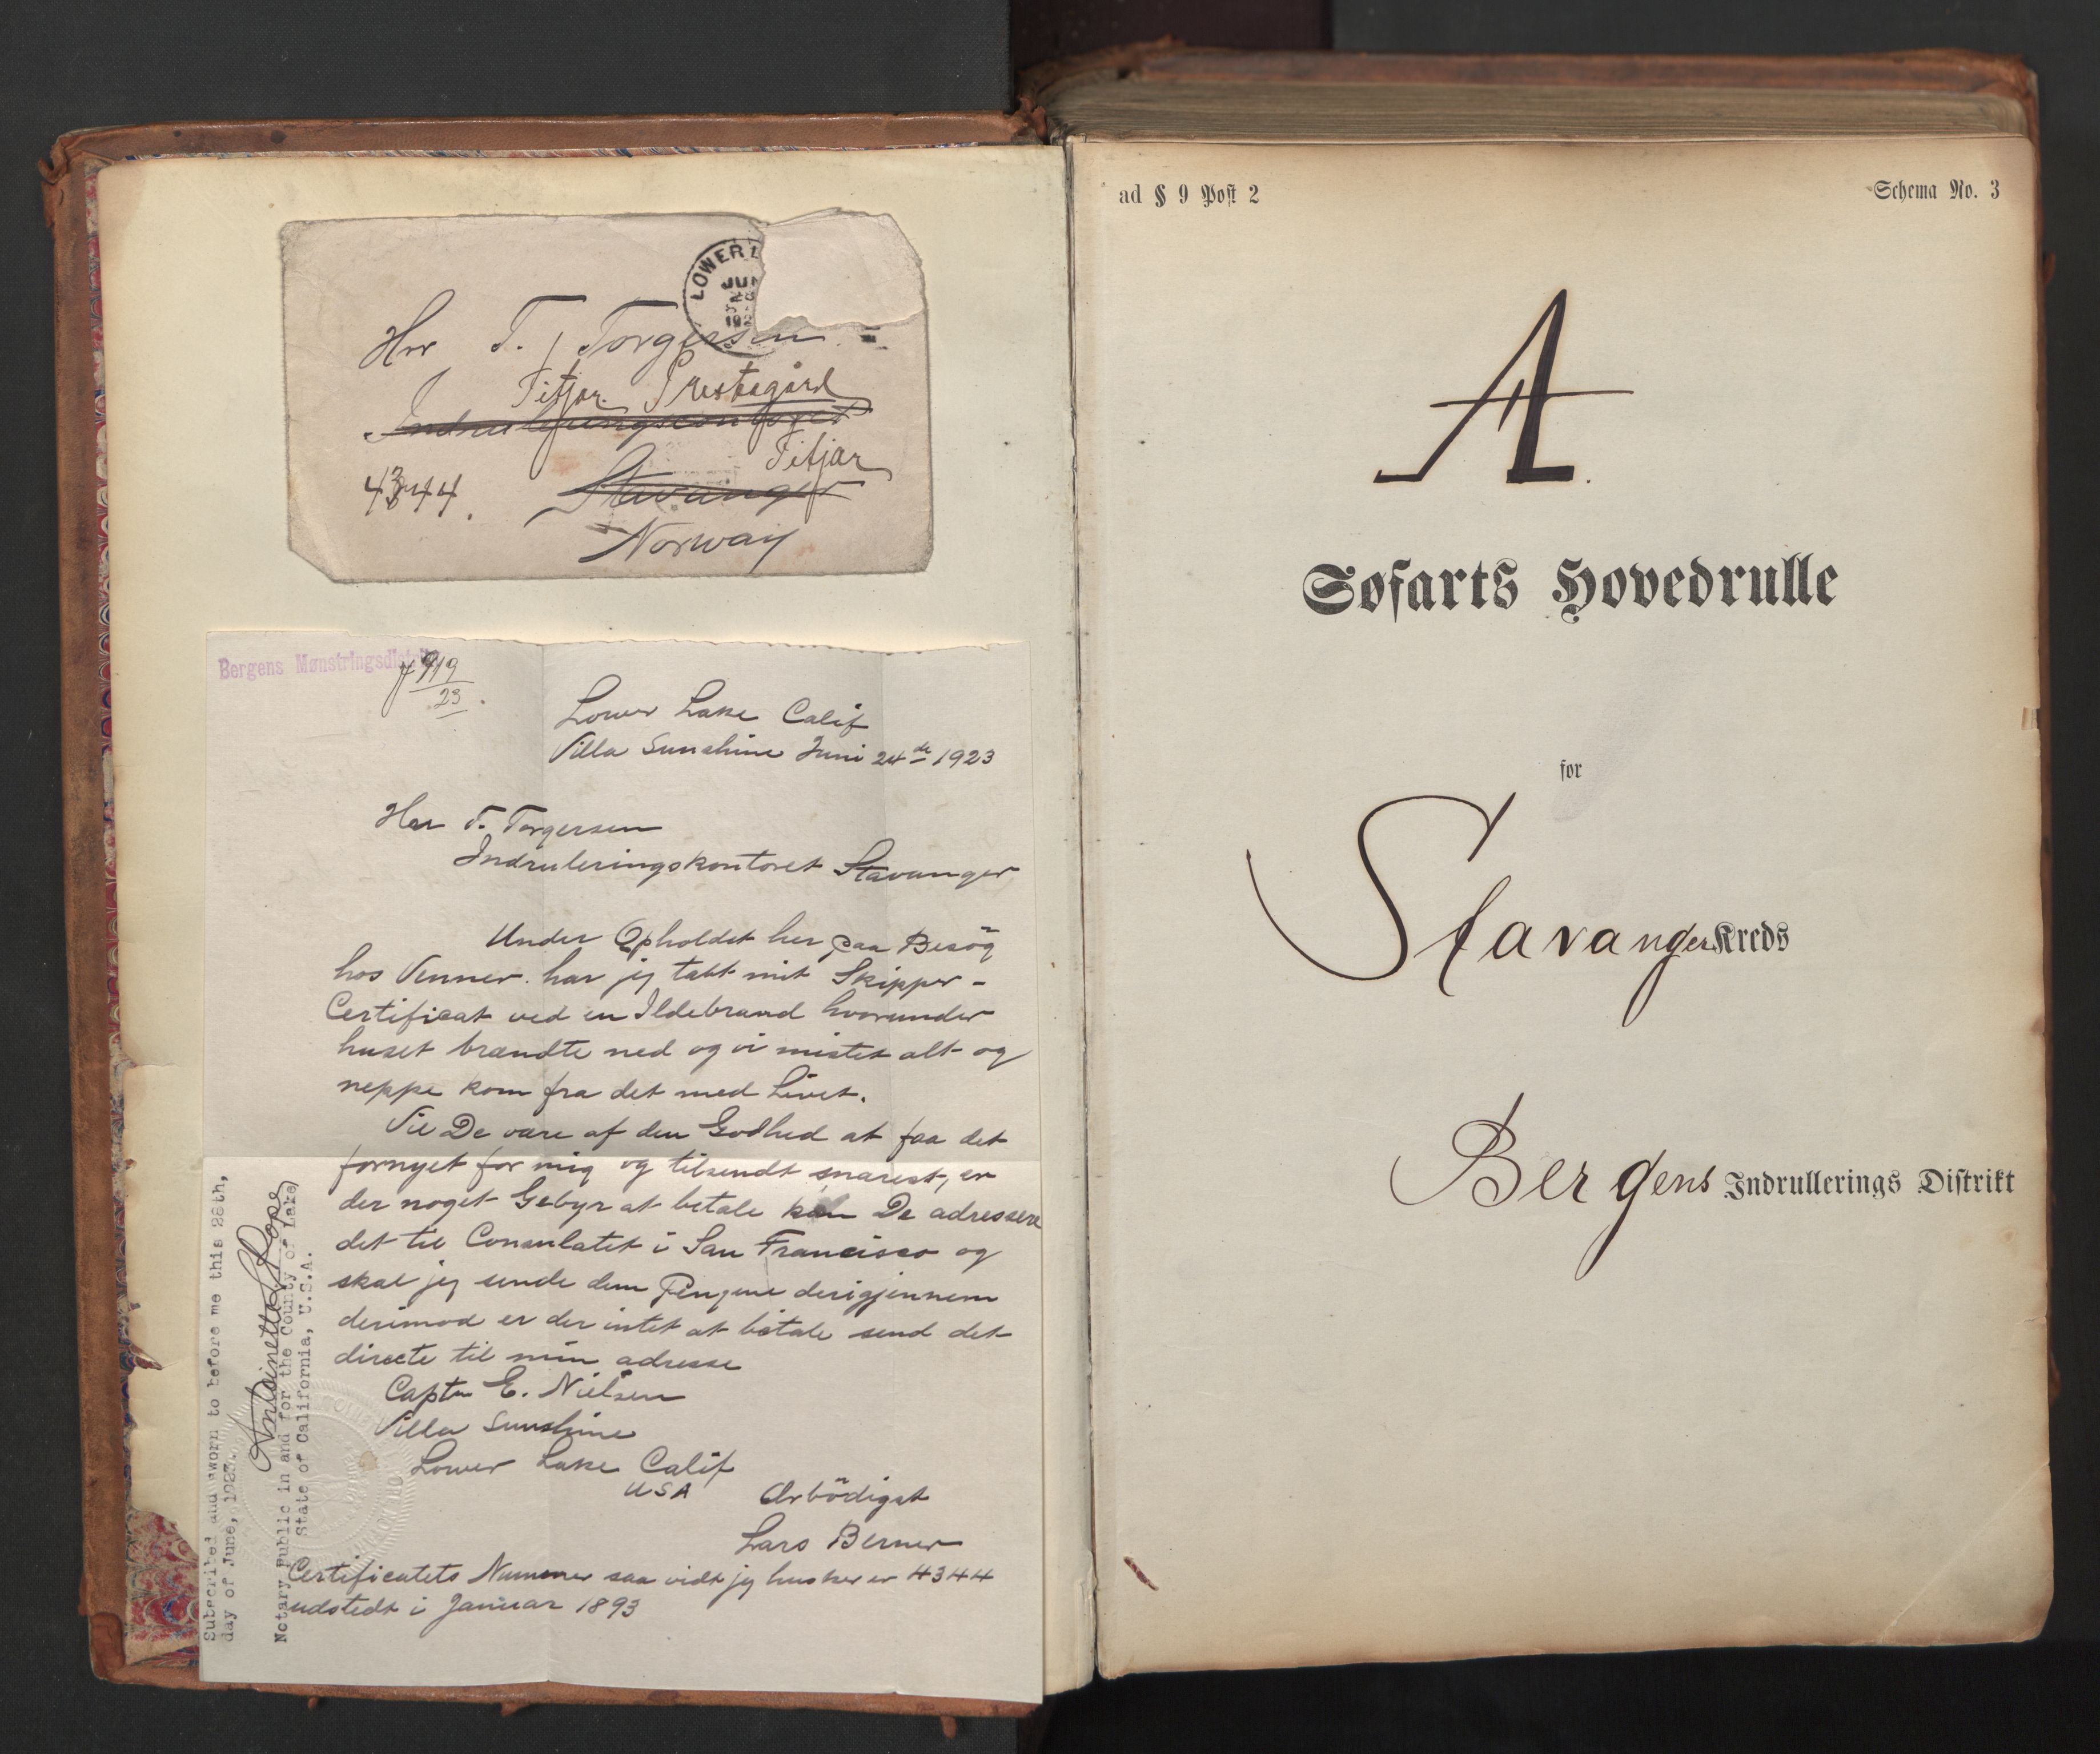 LOWER L
JUN
28
192
Herr T. Torgersen
Titjar. Prestegård
Indrulleringscontoret
Titjar
4344.
Stavanger
Norway
Bergens Mønstringsdistrikt
23.
Lower Lake Calif
Villa Sunshine Juni 24de 1923
Herr T. Torgersen
Indruleringskontoret Stavanger
Under Opholdet her paa Besög
hos Venner har jeg tabt mit Skipper-
Certificat ved en Ildebrand hvorunder
huset brændte ned og vi mistet alt og
neppe kom fra det med Livet.
Vil De være af den Godhed at faa det
fornyet for mig og tilsendt snarest, er
der noget Gebyr at betale kan De adressere
det til Consulatet i San Francisco og
skal jeg sende dem Pengene derigjennem
derimod er der intet at bötale send det
directe til min adresse
Captn E. Nielsen
Villa Sunshine
Lower Lake Calif
USA
Ærbödigst
Lars Berner
Certificatets Nummer saa vidt jeg husker er 4344
udstedt i Januar 1893
Subscribed and sworn to before me this 28th,
day of June, 1923.
Antoinette Pope
Notary Public in and for the County of Lake,
State of California, U.S.A.
ad § 9 Post 2
Schema No. 3
A.
Søfarts Hovedrulle
for
Stavanger Kreds
Bergens Indrullerings Distrikt